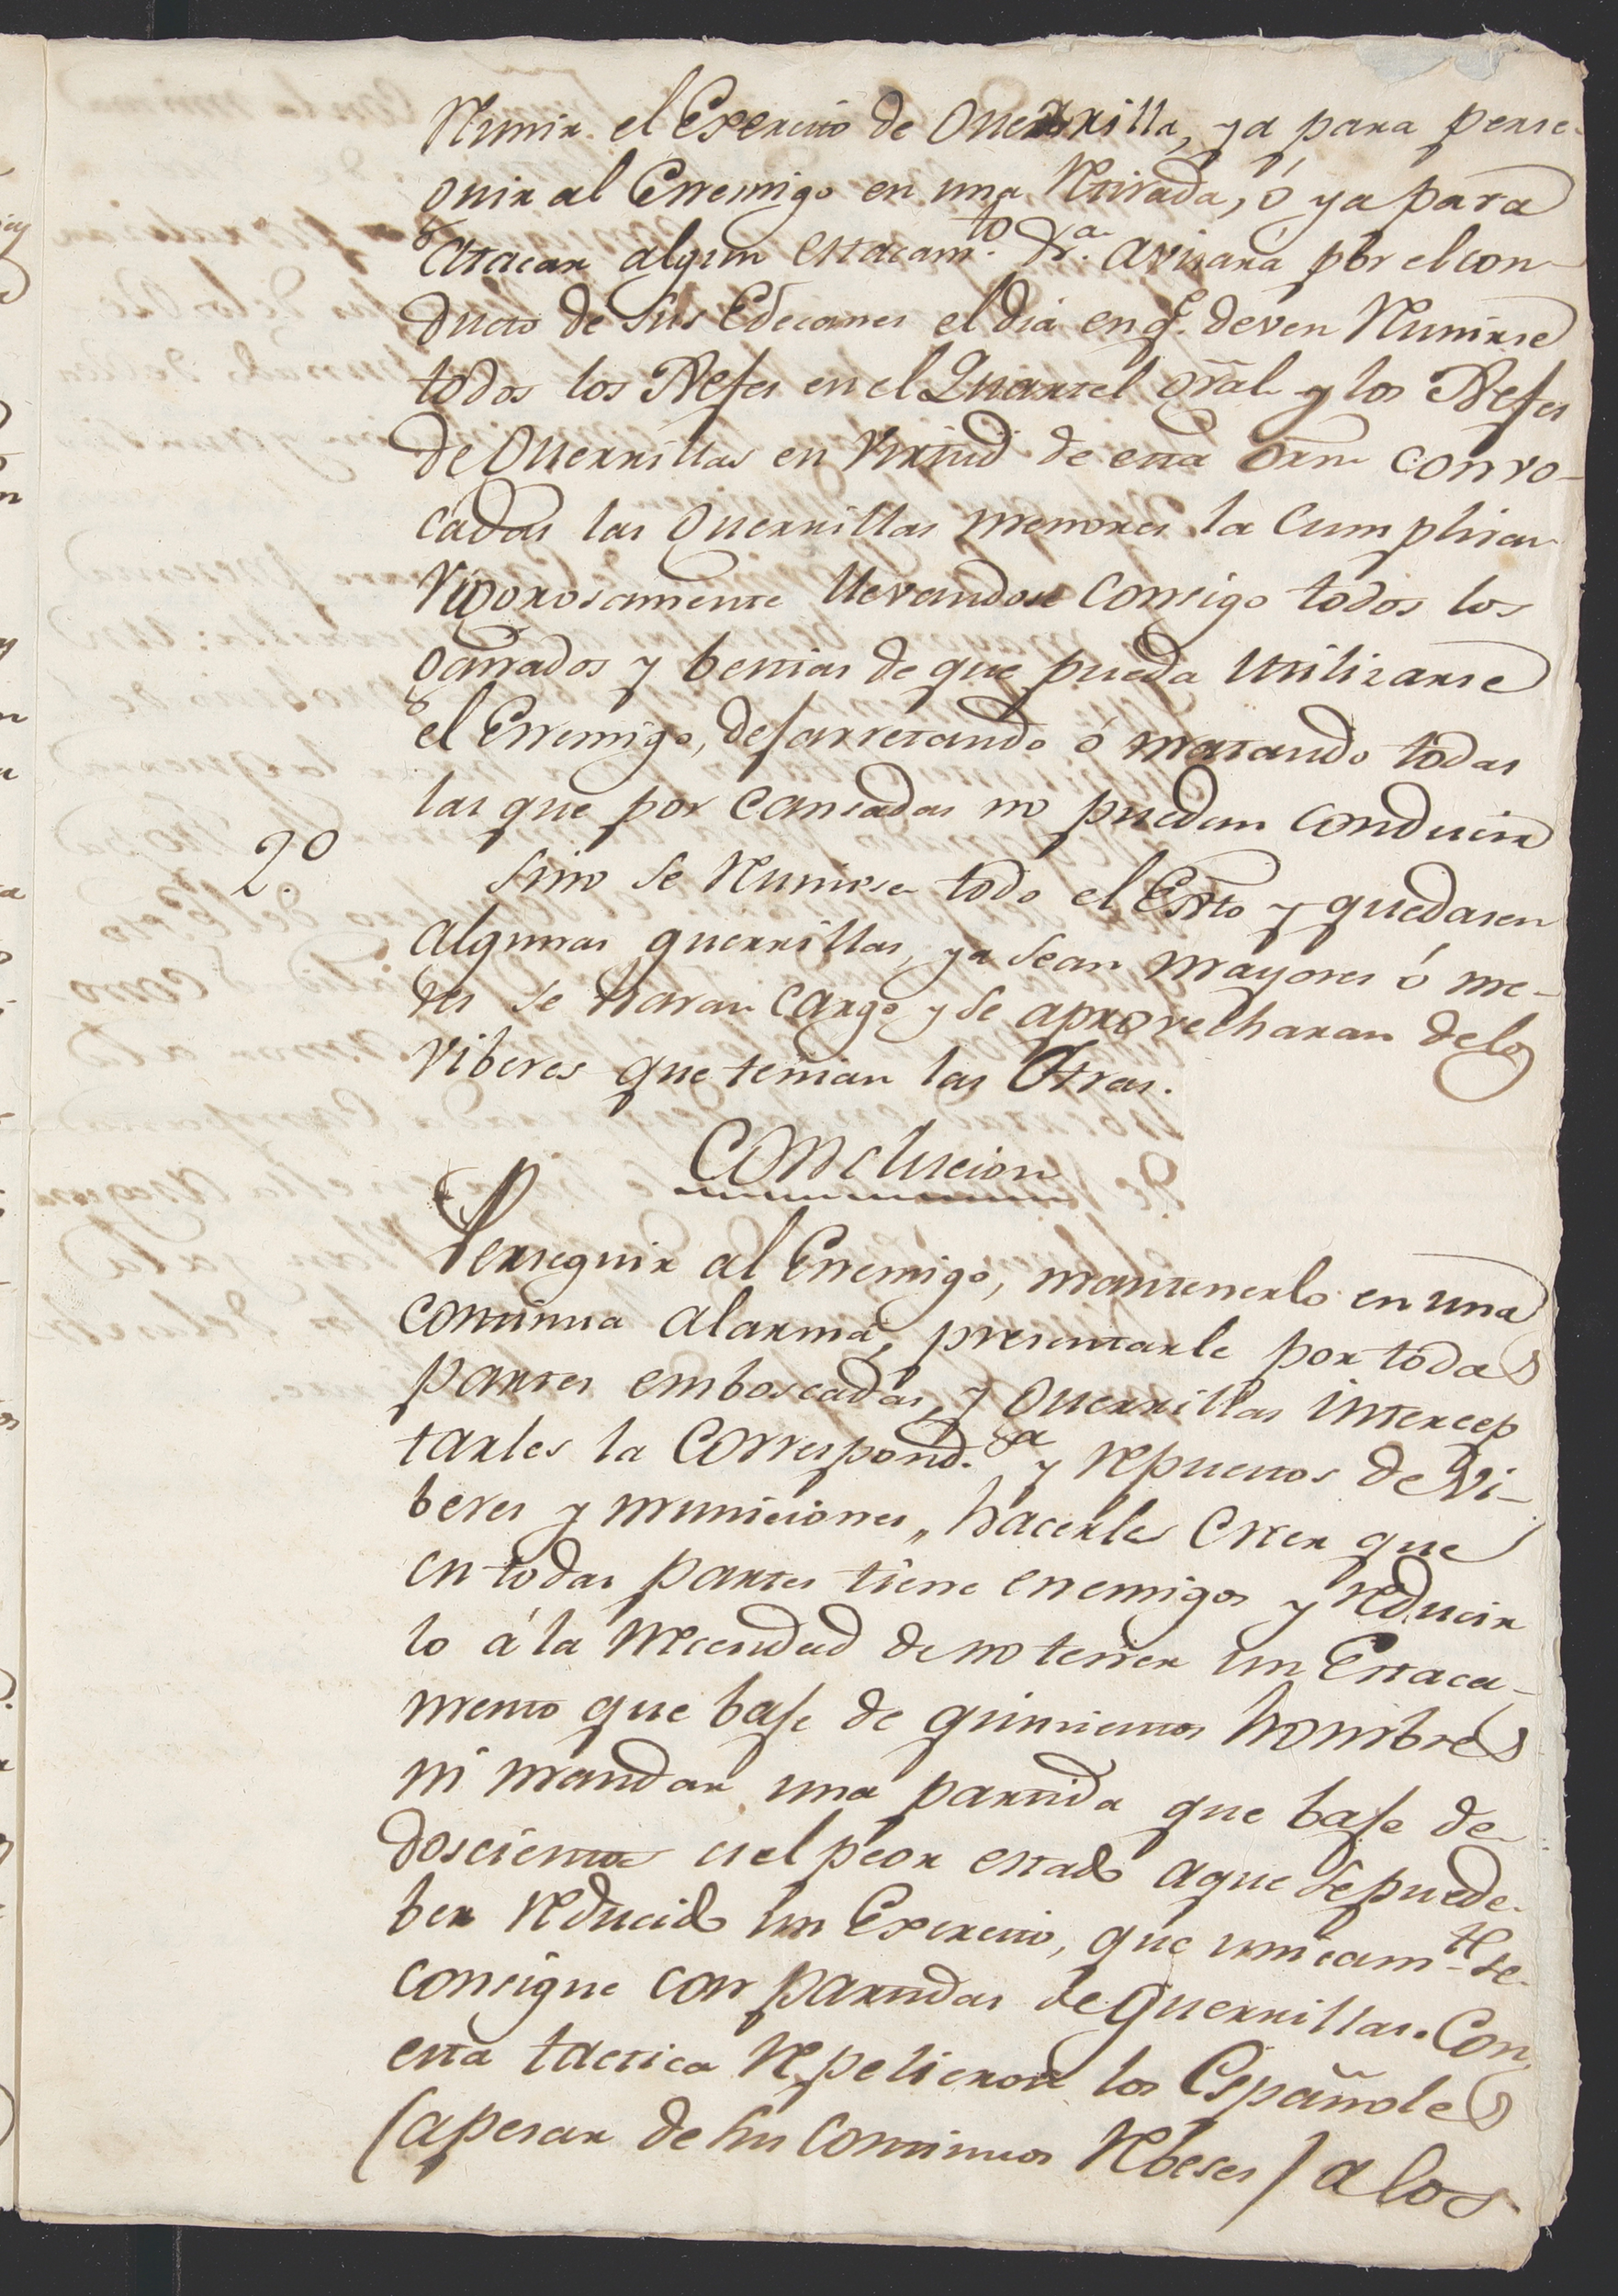 Reunir el Exercito de Guerrilla, ya para perse-
guir al Enemigo en una Retirada, ó ya para
atacar algun estacam.to &.a avisará por el con-
ducto de sus Edecanes el dia en q.e deven Reunirse
todos los Xefes en el Quartel gral y los Xefes
de Guerrillas en virtud de esta orn convo-
cadas las Guerrillas menores la cumpliran
Vigorosamente llevandose consigo todos los
ganados y bestias de que pueda utilizarse
el Enemigo, desarretando ó matando todas
las que por cansadas no puedan conducir
2.o Sino se Reuniese todo el Exto y quedasen
algunas guerrillas, ya sean mayores ó me-
res se haran cargo y se aprovecharan de los
viberes que tenian las Otras.
Conclucion
Perseguir al Enemigo, mantenerlo en una
continua alarma, presentarle por todas
partes emboscadas, y Guerrillas intercep
tarles la Correspond.a y repuestos de vi-
beres y municiones, hacerles creer que
en todas partes tiene enemigos y reducir
lo á la necesidad de no tener un Estaca-
mento que base de quinientos hombres
ni mandar una partida que base de
doscientos es el peor estado a que se puede
ber reducido un Exercito, que unicam.te se
consigue con partidas de Guerrillas. Con
esta tactica Repelieron los Españoles
(apesar de sus continuos Rebeses) a los